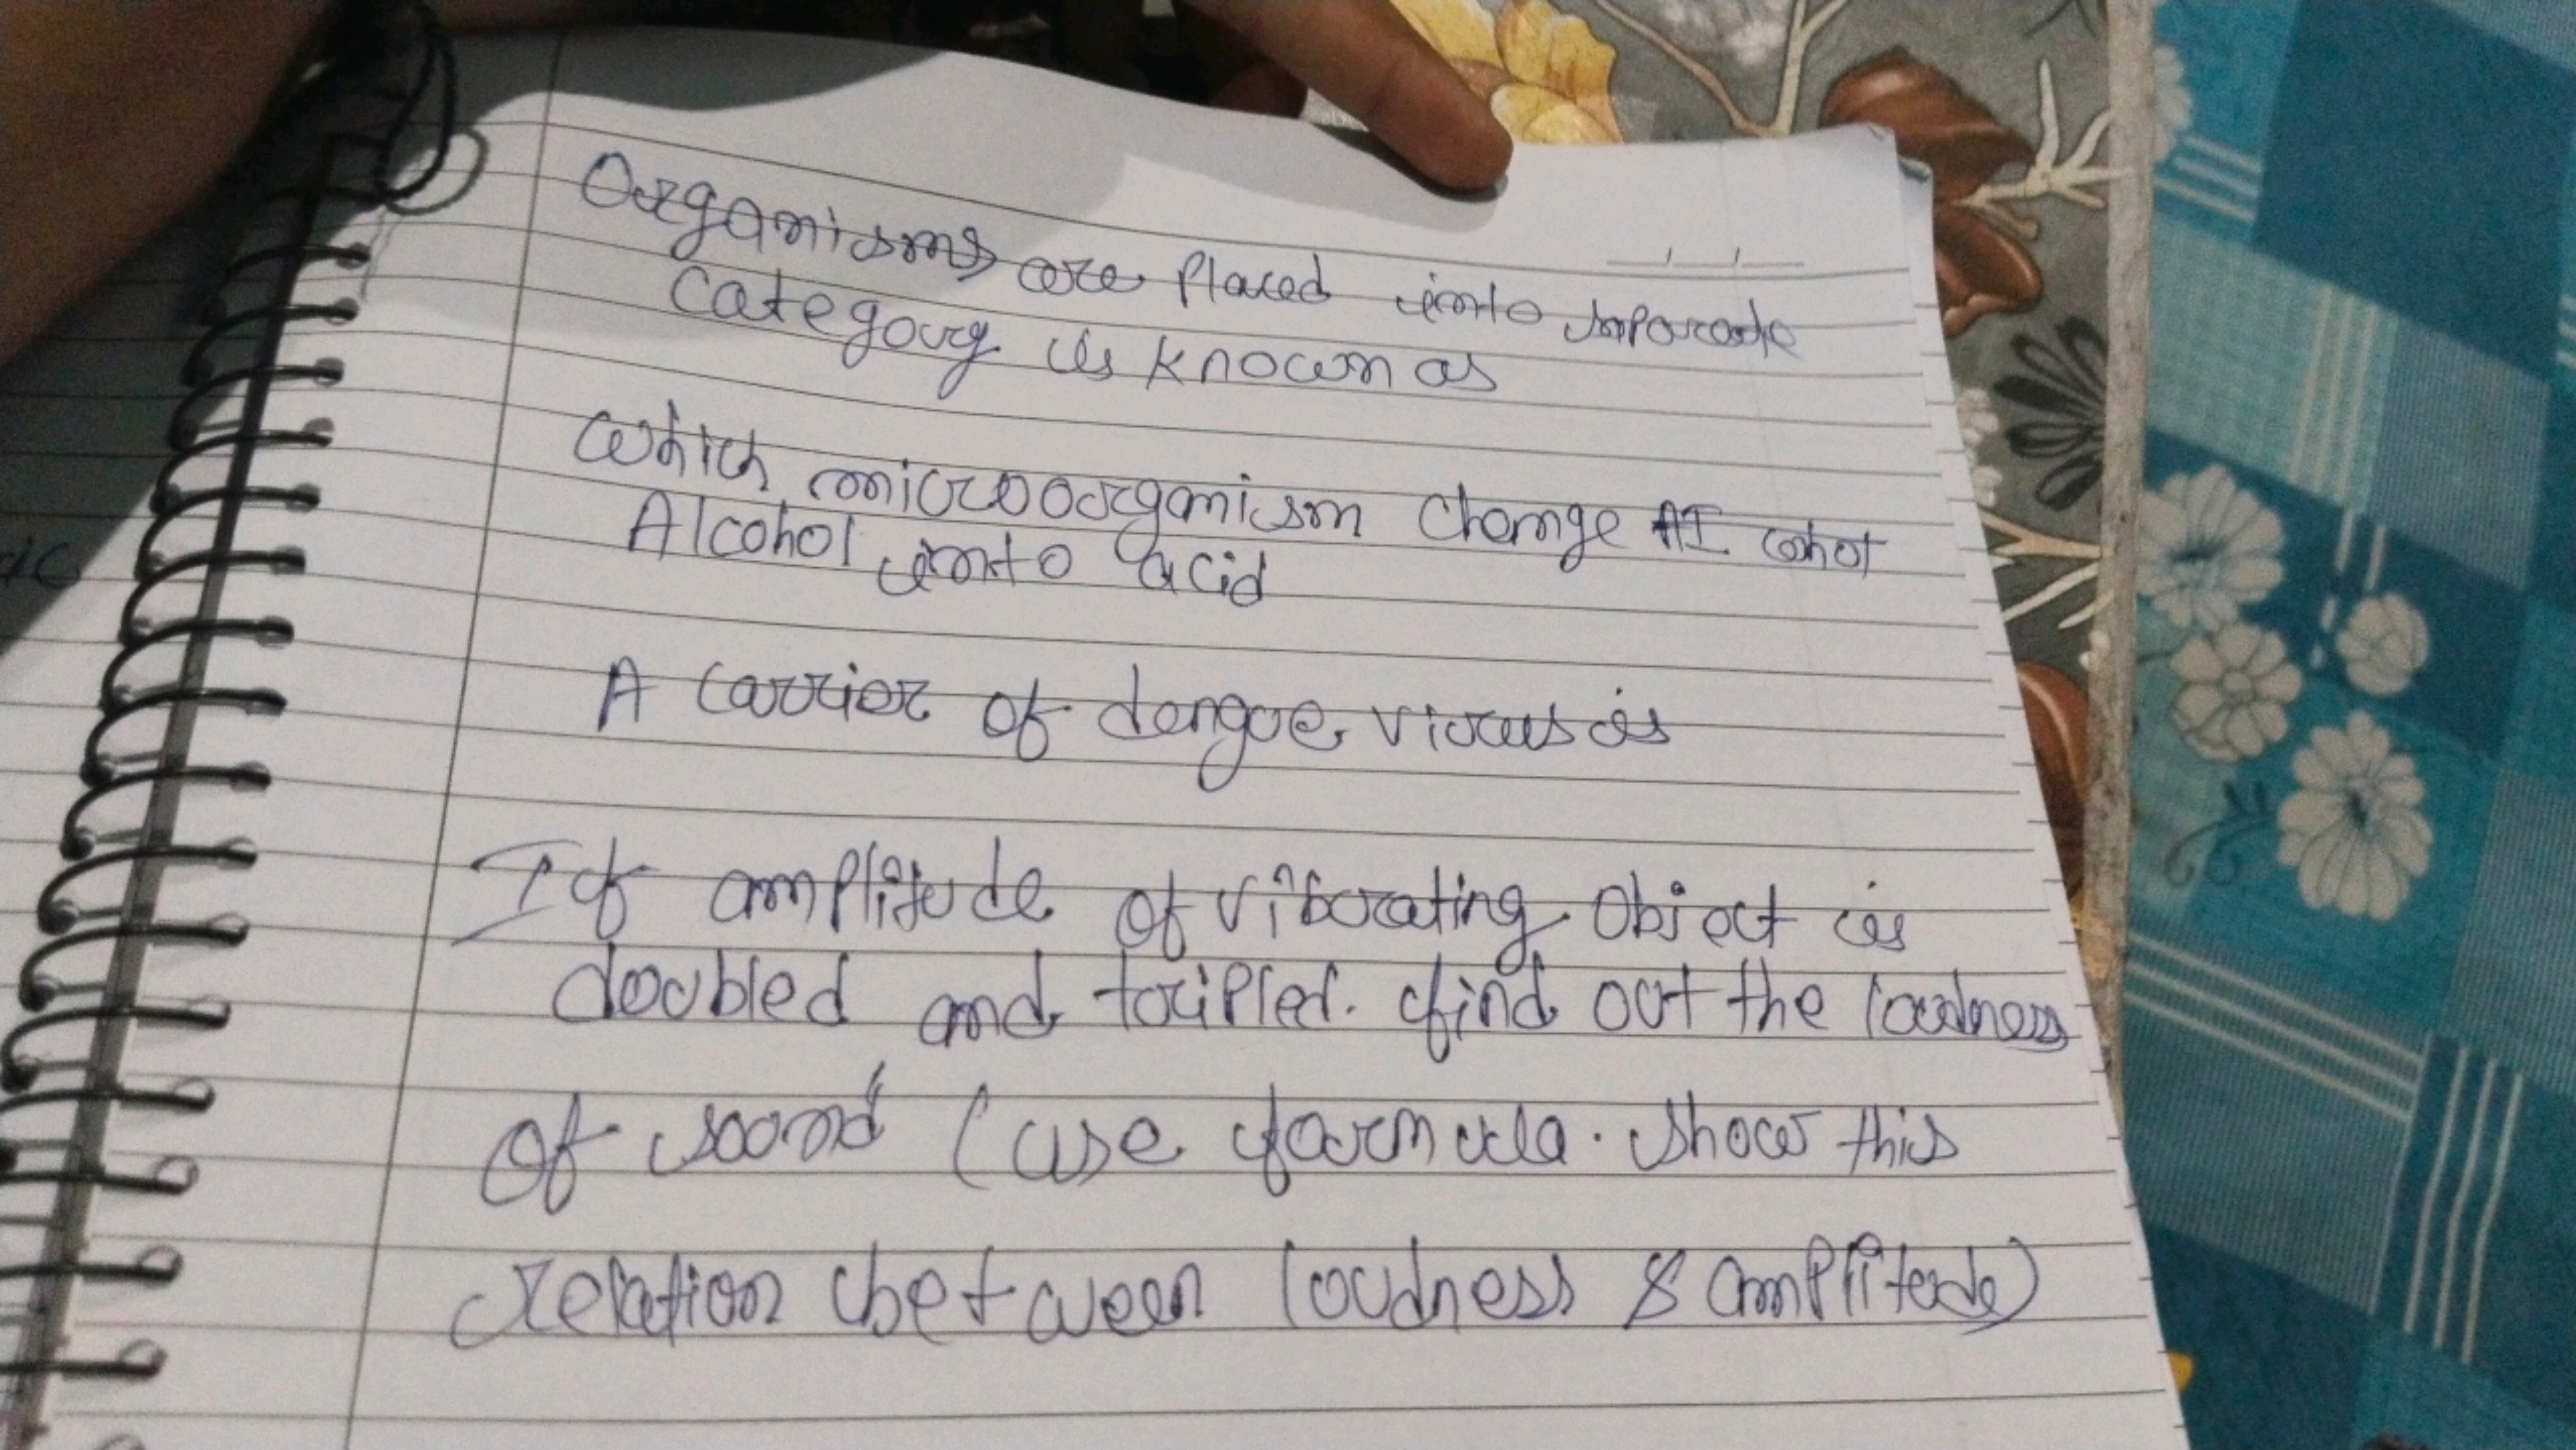 Organisms are placed into saparate
Category is known as
Which microorganism change
Alcohol into acid
A carrier of dengue virus is
If amplitude of vibrating object is
doubled and tripled. find out the loudness
of sound (use formula. show this
relation between loudness & amplitude)